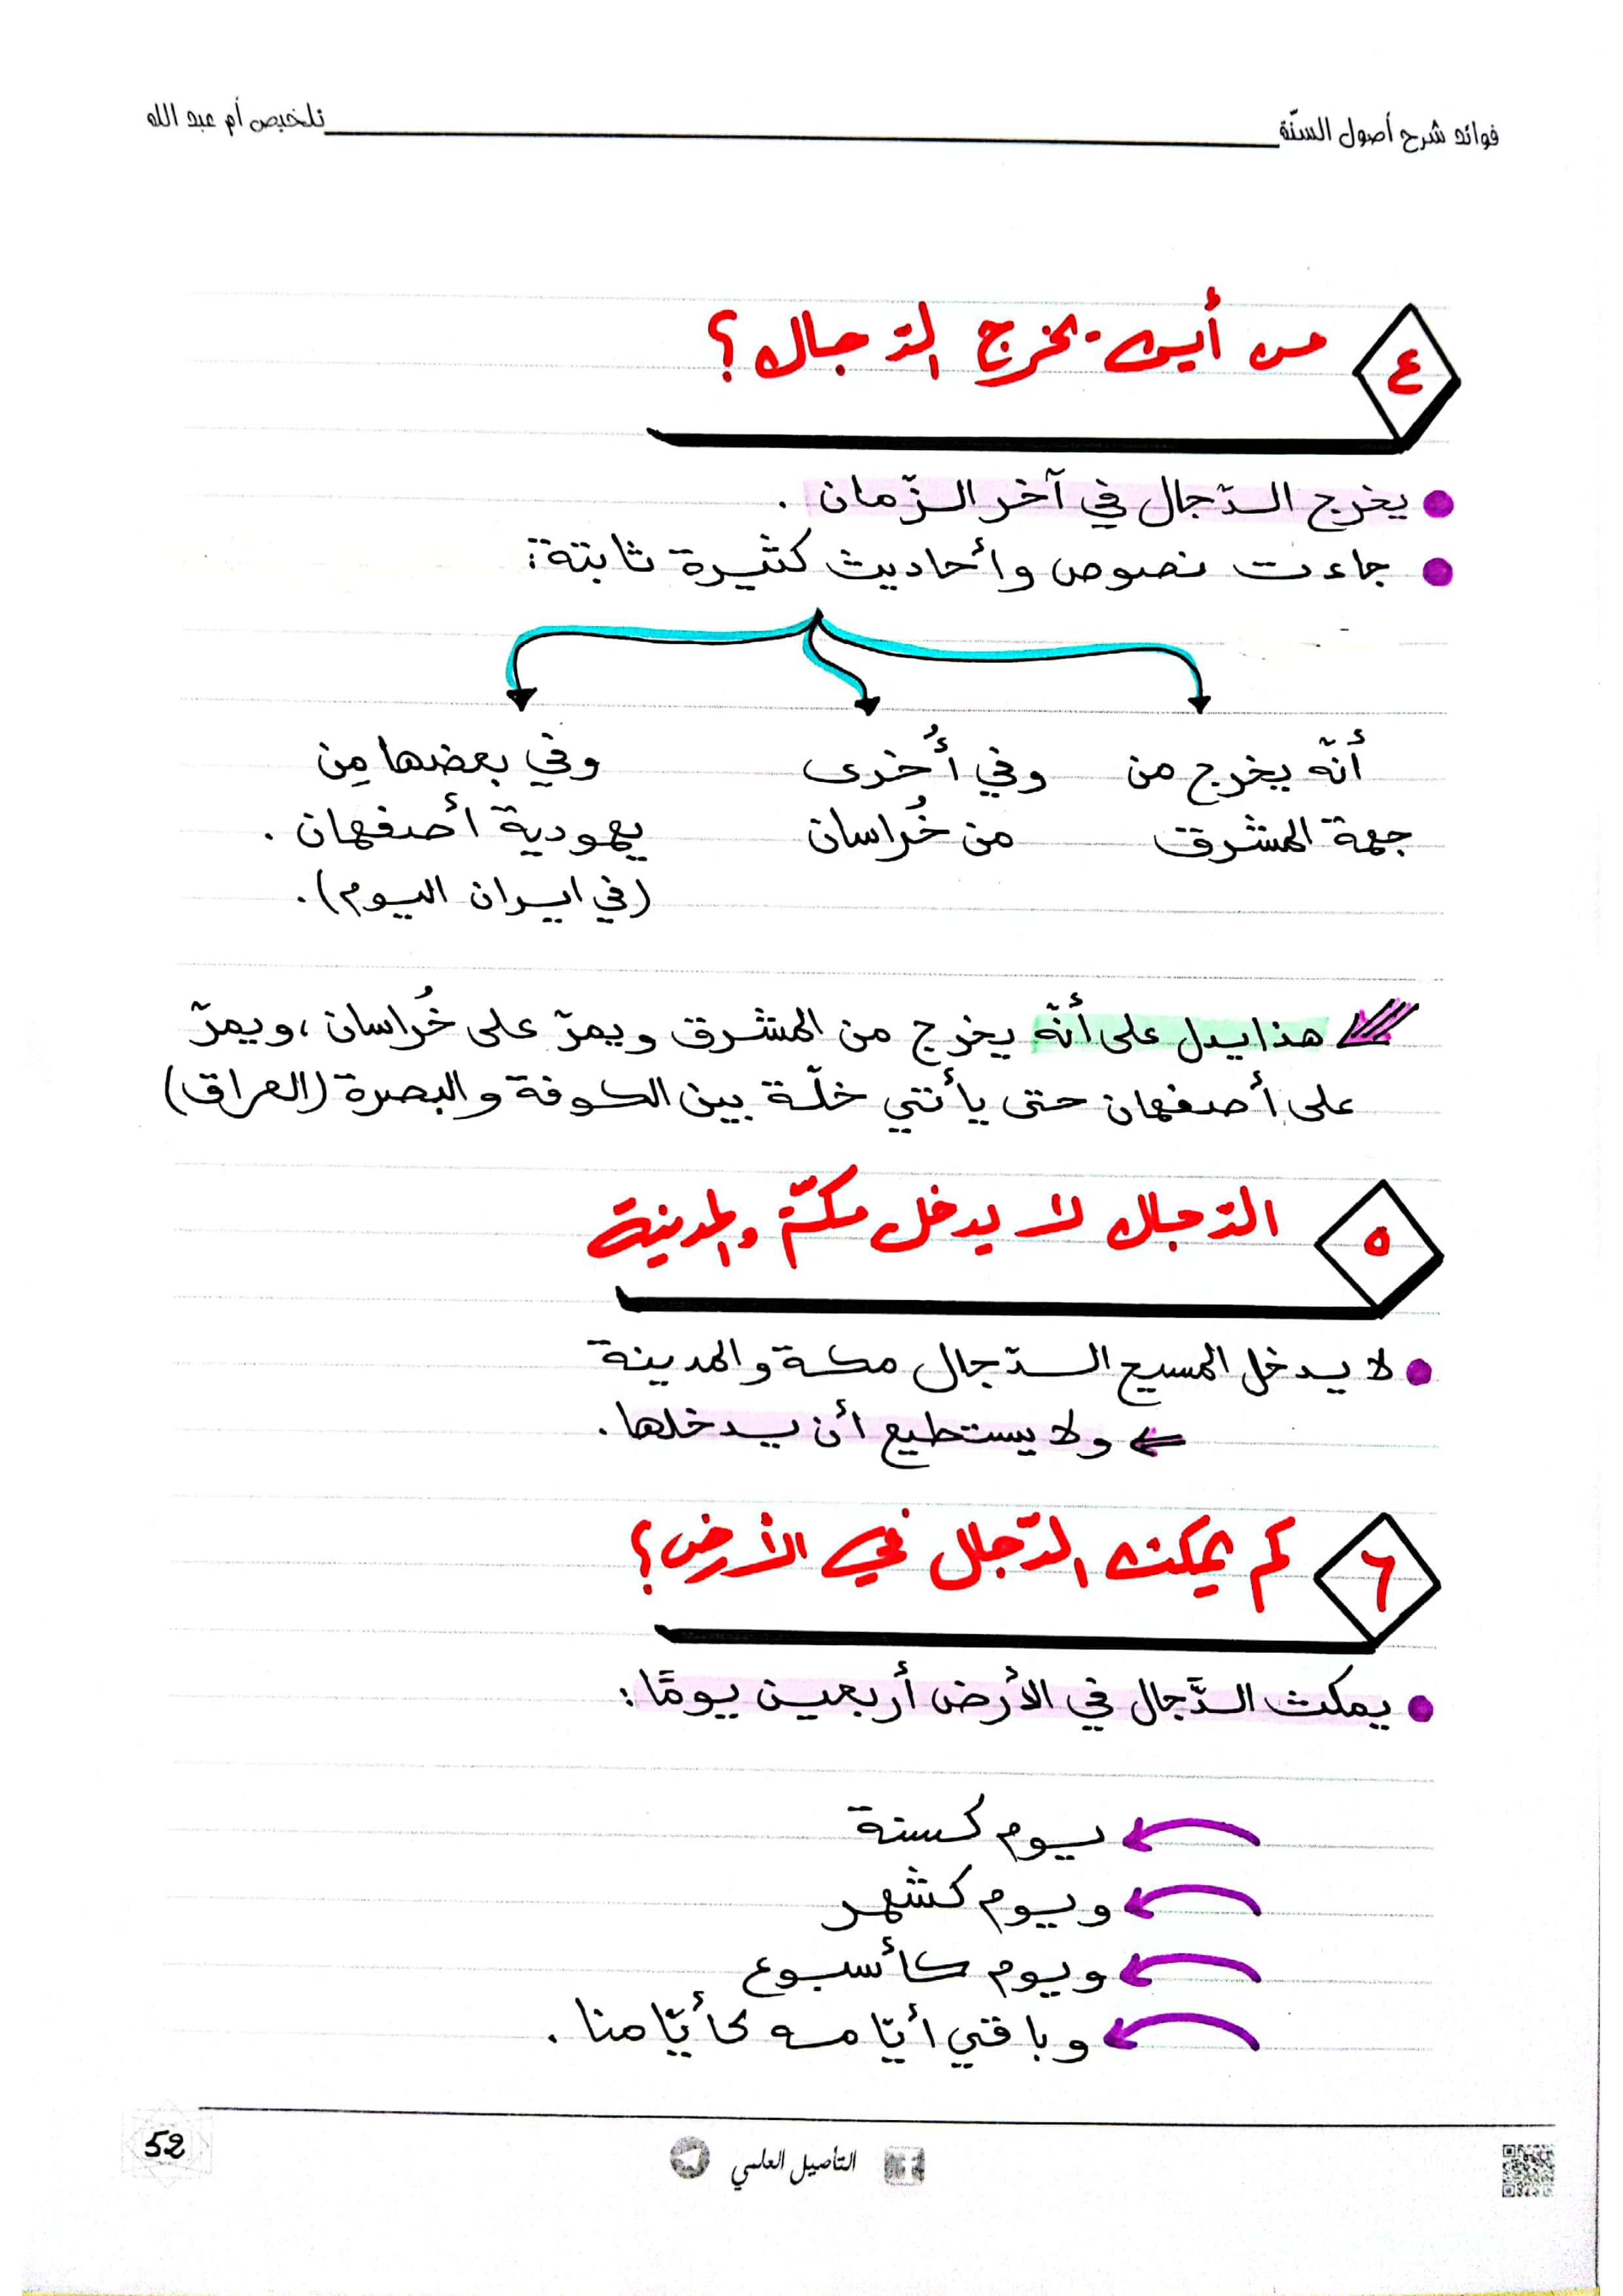 فوائد شرح أصول السنّة
تلخيص أم عبد الله
٤
من أين يخرج الدّجال؟
يخرج الدّجال في آخر الزّمان .
جاءت نصوص وأحاديث كثيرة ثابتة:
أنّه يخرج من
جهة المشرق
وفي أُخرى
من خُراسان
وفي بعضها مِن
يهودية أصفهان .
(في ايران اليوم).
هذا يدل على أنّه يخرج من المشرق ويمرّ على خُراسان، ويمرّ
على أصفهان حتى يأتي خلّة بين الكوفة والبصرة (العراق)
٥
الدّجال لا يدخل مكّة والمدينة
لا يدخل المسيح الدّجال مكة والمدينة
ولا يستطيع أن يدخلها.
٦
كم يمكث الدّجال في الأرض؟
يمكث الدَّجال في الأرض أربعين يومًا:
يوم كسنة
ويوم كشهر
ويوم كأسبوع
وباقي أيّامه كأيّامنا .
التأصيل العلمي
52